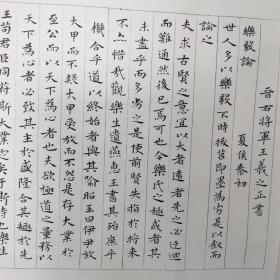 晉右將軍王羲之正書
樂毅論
夏侯泰初
世人多以樂毅不時拔莒即墨為劣是以敘而
論之
夫求古賢之意宜以大者遠者先之必迂迴
而難通然後已焉可也今樂氏之趣或者其
未盡乎而多劣之是使前賢失指於將來
不亦惜哉觀樂生遺燕惠王書其殆庶乎
機合乎道以終始者與其喻昭王曰伊尹放
大甲而不疑大甲受放而不怨是存大業於
至公而以天下為心者也夫欲極道之量務以
天下為心者必致其主於盛隆合其趣於先
王苟君臣同符斯大業定矣于斯時也樂生